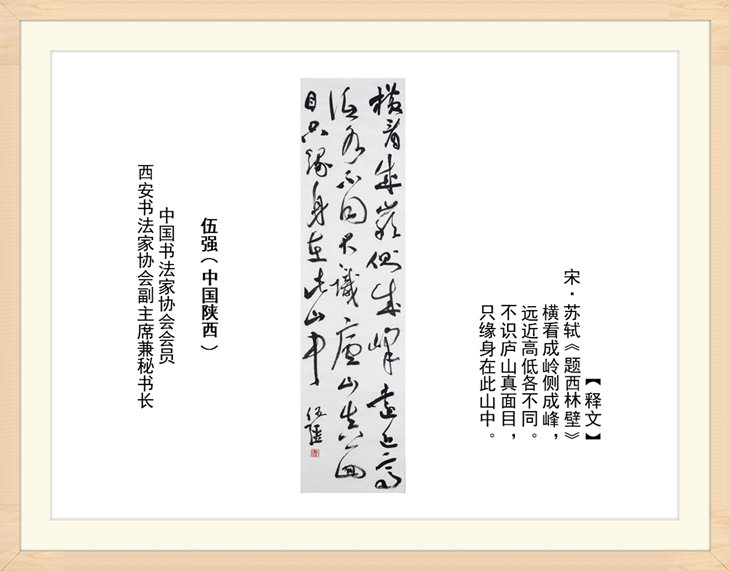 【释文】
宋·苏轼《题西林壁》
横看成岭侧成峰，
远近高低各不同。
不识庐山真面目，
只缘身在此山中。
橫看成嶺側成峰遠近高
低各不同不識廬山真面
目只緣身在此山中
伍強
伍强（中国陕西）
中国书法家协会会员
西安书法家协会副主席兼秘书长